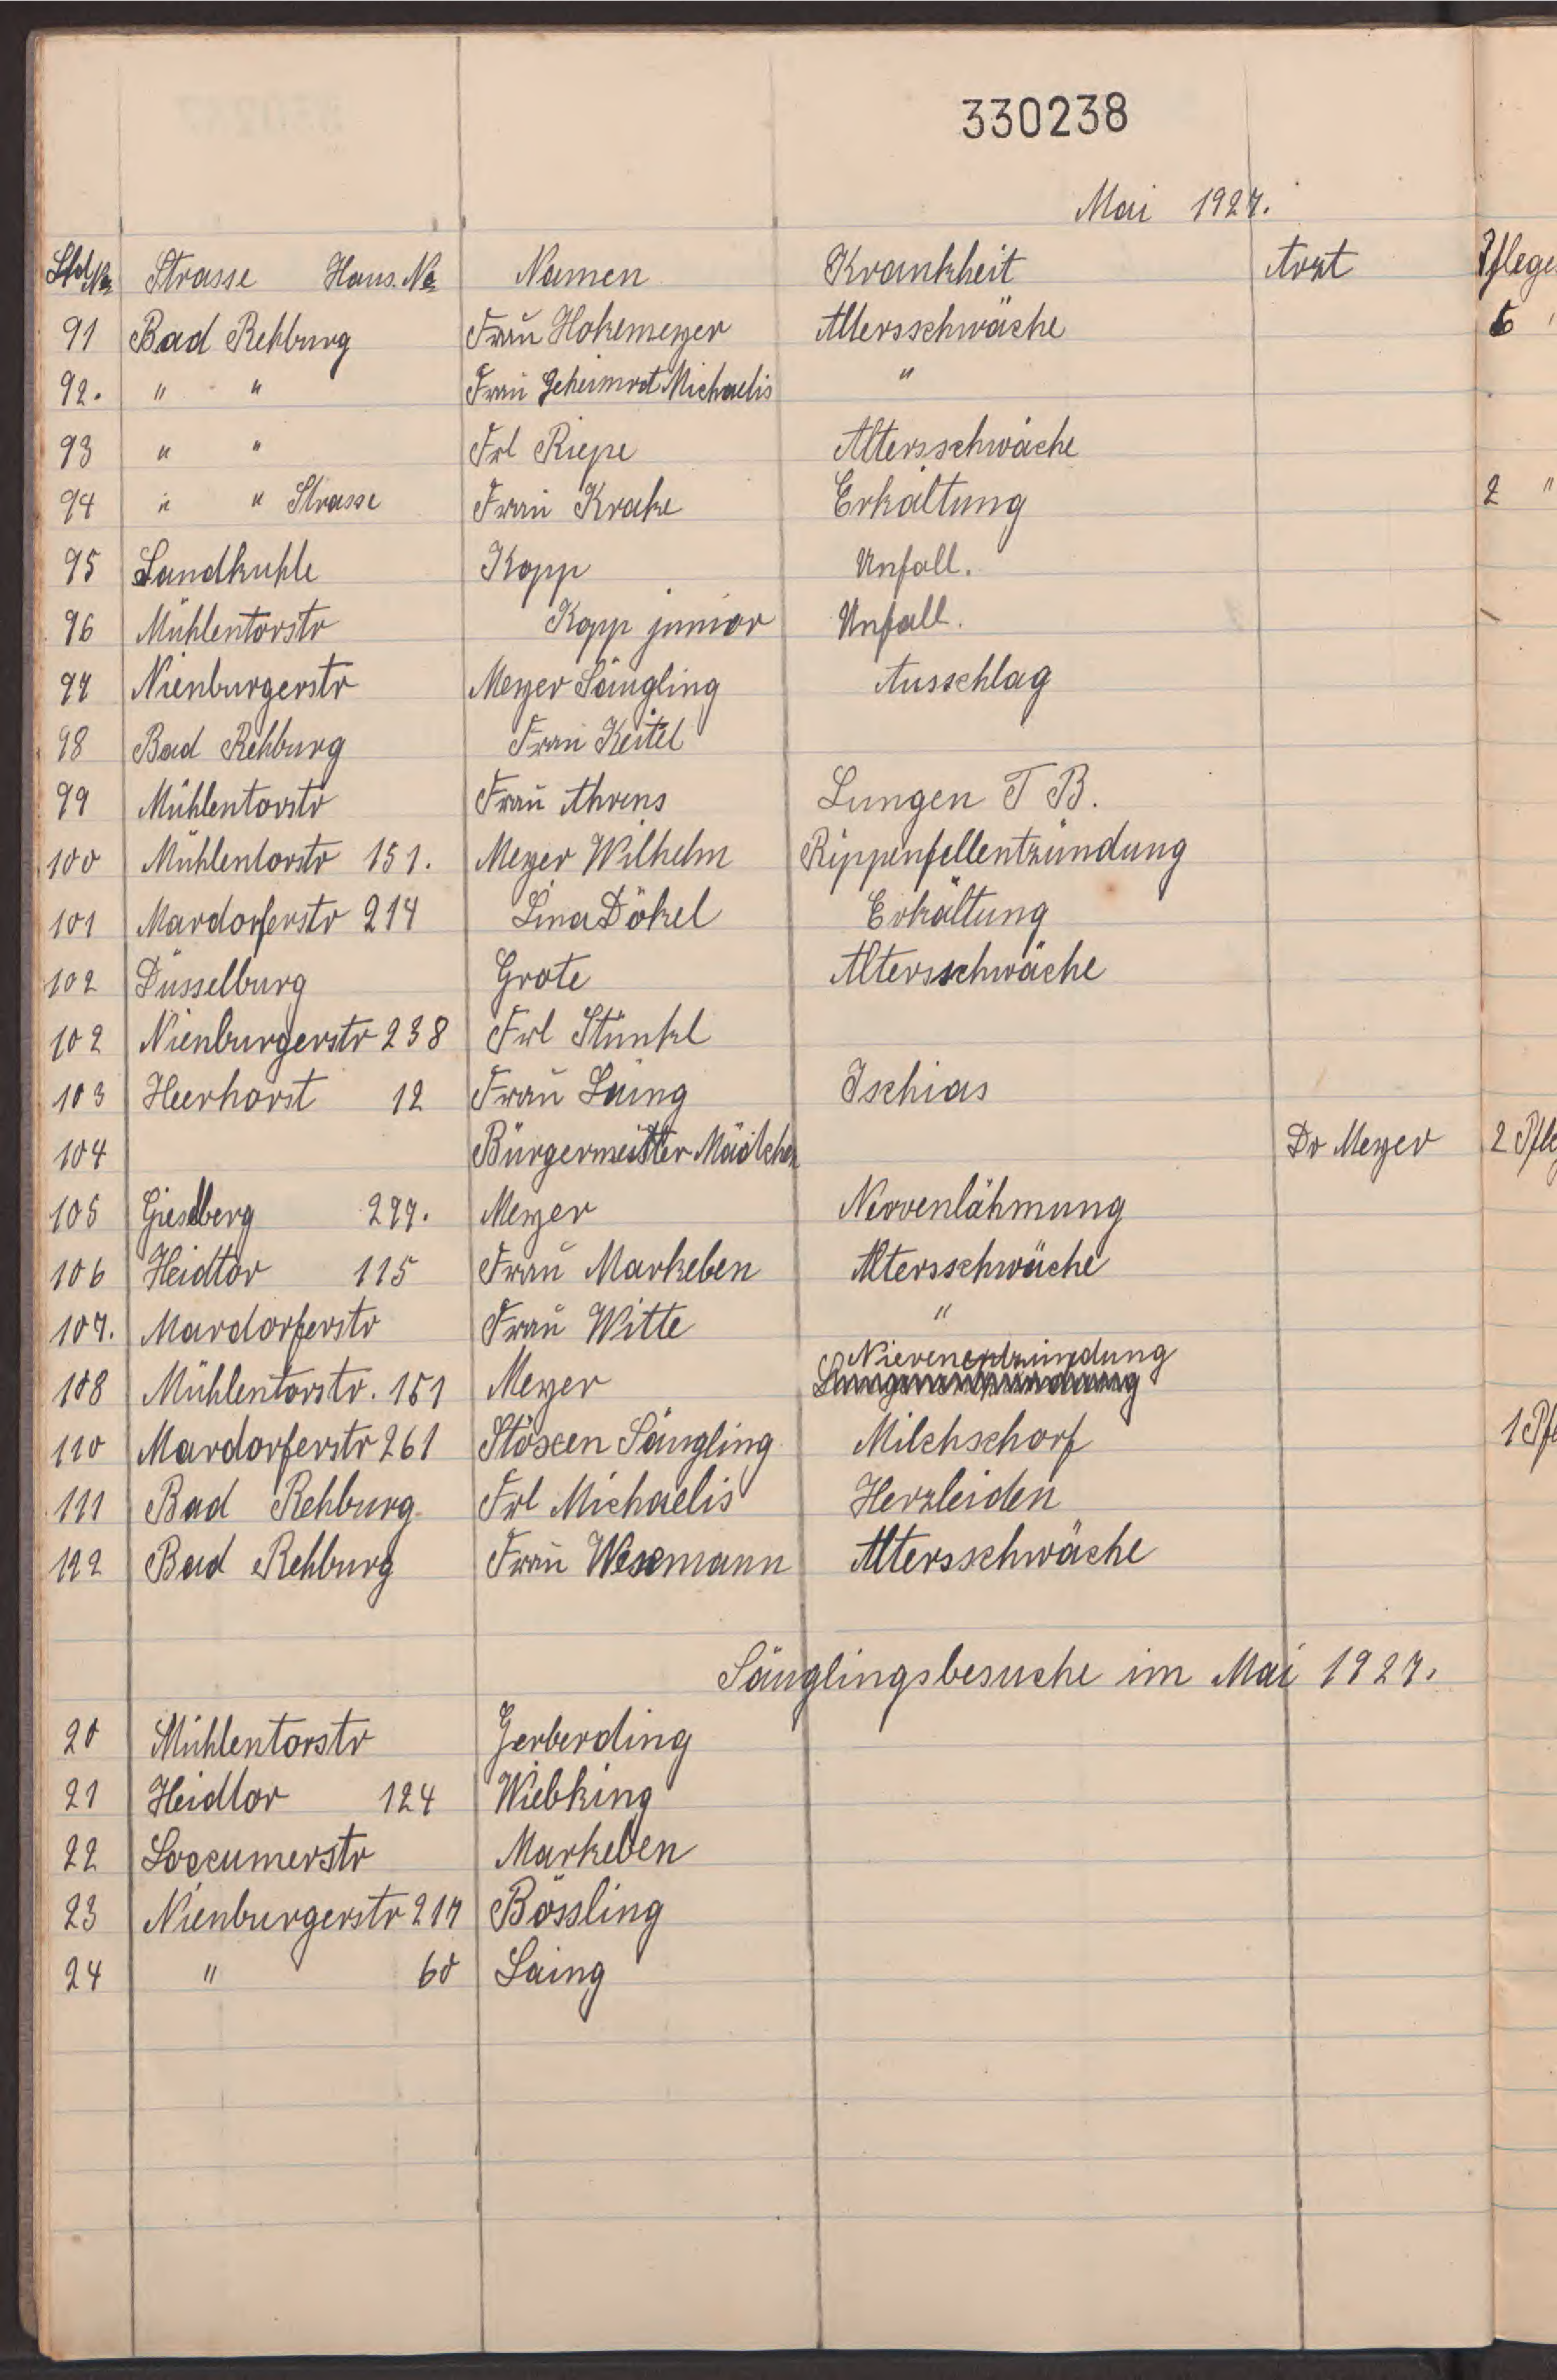 330238
Mai 1927.
Lfd Nr Strasse Haus. Nr Namen Krankheit Arzt Pflege
91 Bad Rehburg Frau Hokemeyer Altersschwäche 6
92. " " Frau Geheimrat Michaelis "
93 " " Frl Riepe Altersschwäche
94 " " Strasse Frau Krake Erkältung 2 "
95 Sandkuhle Kopp Unfall.
96 Mühlentorstr Kopp junior Unfall.
97 Nienburgerstr Meyer Säugling Ausschlag
98 Bad Rehburg Frau Keitel
99 Mühlentorstr Frau Ahrens Lungen T B.
100 Mühlentorstr 151. Meyer Wilhelm Rippenfellentzündung
101 Mardorferstr 214 Lina Dökel Erkältung
102 Düsselburg Grote Altersschwäche
102 Nienburgerstr 238 Frl Stünkel
103 Heerhorst 12 Frau Laing Ischias
104 Bürgermeister Mädchen Dr Meyer 2 Pfle
105 Giesberg 297. Meyer Nervenlähmung
106 Heidtor 115 Frau Markeben Altersschwäche
107. Mardorferstr Frau Witte "
Nierenentzündung
108 Mühlentorstr. 151 Meyer Lungenentzündung
110 Mardorferstr 261 Stöxen Säugling Milchschorf 1 Pfl
111 Bad Rehburg Frl Michaelis Herzleiden
122 Bad Rehburg Frau Wesemann Altersschwäche
Säuglingsbesuche im Mai 1927.
20 Mühlentorstr Gerberding
21 Heidtor 124 Wiebking
22 Loccumerstr Markeben
23 Nienburgerstr 217 Bössling
24 " 60 Laing